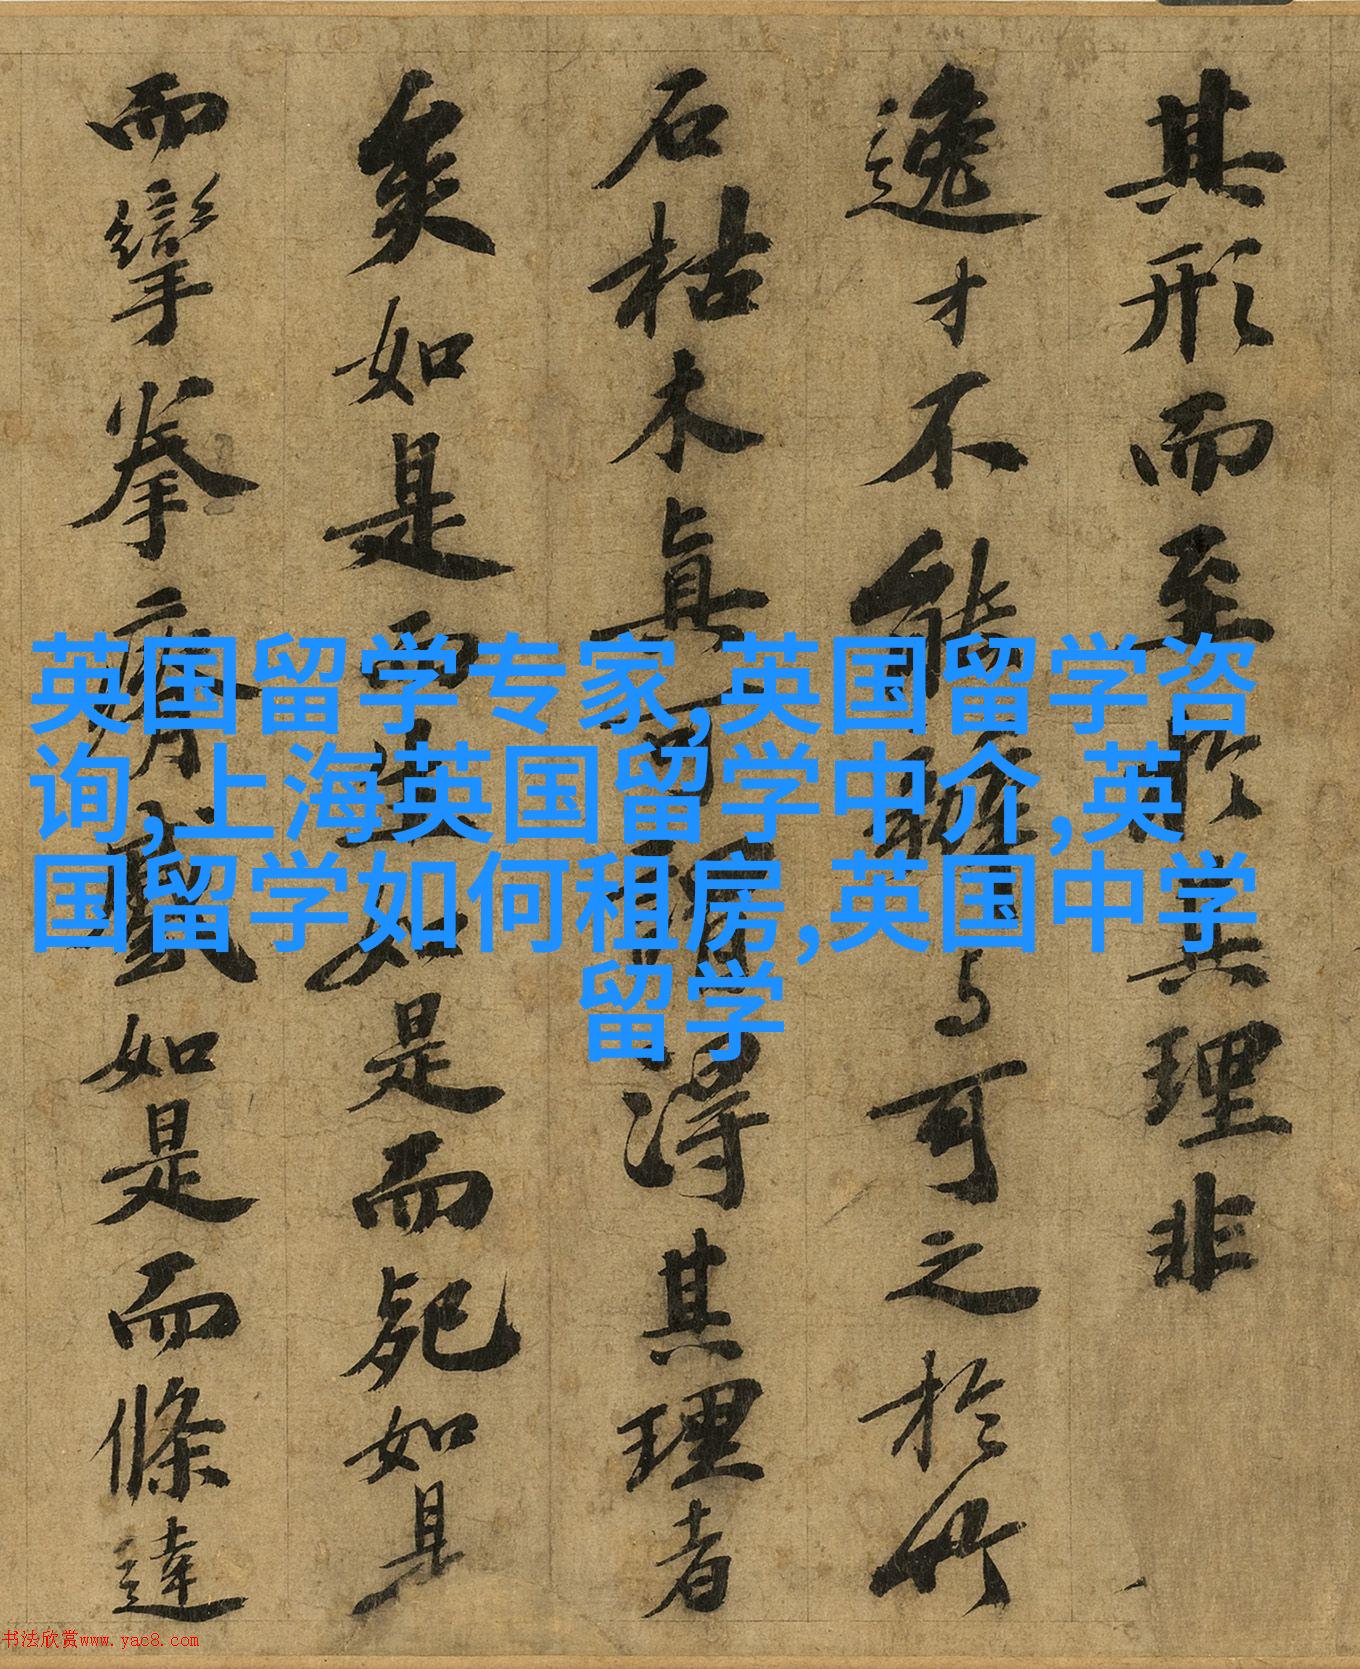 其形而至於其理非
逸才不能辨与可之於竹
石枯木真可謂得其理者
矣如是而生如是而死如是
而攣拳瘠蹙如是而條達
英国留学专家,英国留学咨
询,上海英国留学中介,英
国留学如何租房,英国中学
留学
书法欣赏www.yac8.com